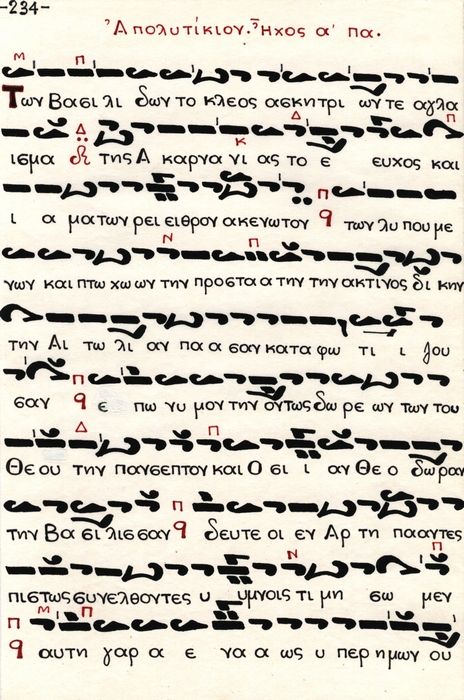 -234-
Ἀπολυτίκιον. Ἦχος α' πα.
Μ Π
Των Βασι λι δων το κλεος ασκητρι ων τε αγλα
Δ Δ Κ Π
ισμα της Α καρνα νι ας το ε ευχος και
Π
ι α ματων ρει ειθρον ακενωτον q των λυ που με
Ν Π
νων και πτω χω ων την προστα α την την ακτινος δι κην
την Αι τω λι αν πα α σαν κατα φω τι ι ζου
Π
σαν q ε πω νυ μον την οντως δω ρε ων των του
Δ Π
Θε ου την πανσεπτον και Ο σι ι αν Θε ο δω ραν
Π
την Βα σι λισσαν q δευτε οι εν Αρ τη πα αντες
Ν Π
πιστως συνελθοντες υ υμνοις τι μη σω μεν
Π Μ Π
q αυτη γαρ α ε να α ως υ περ ημων ου